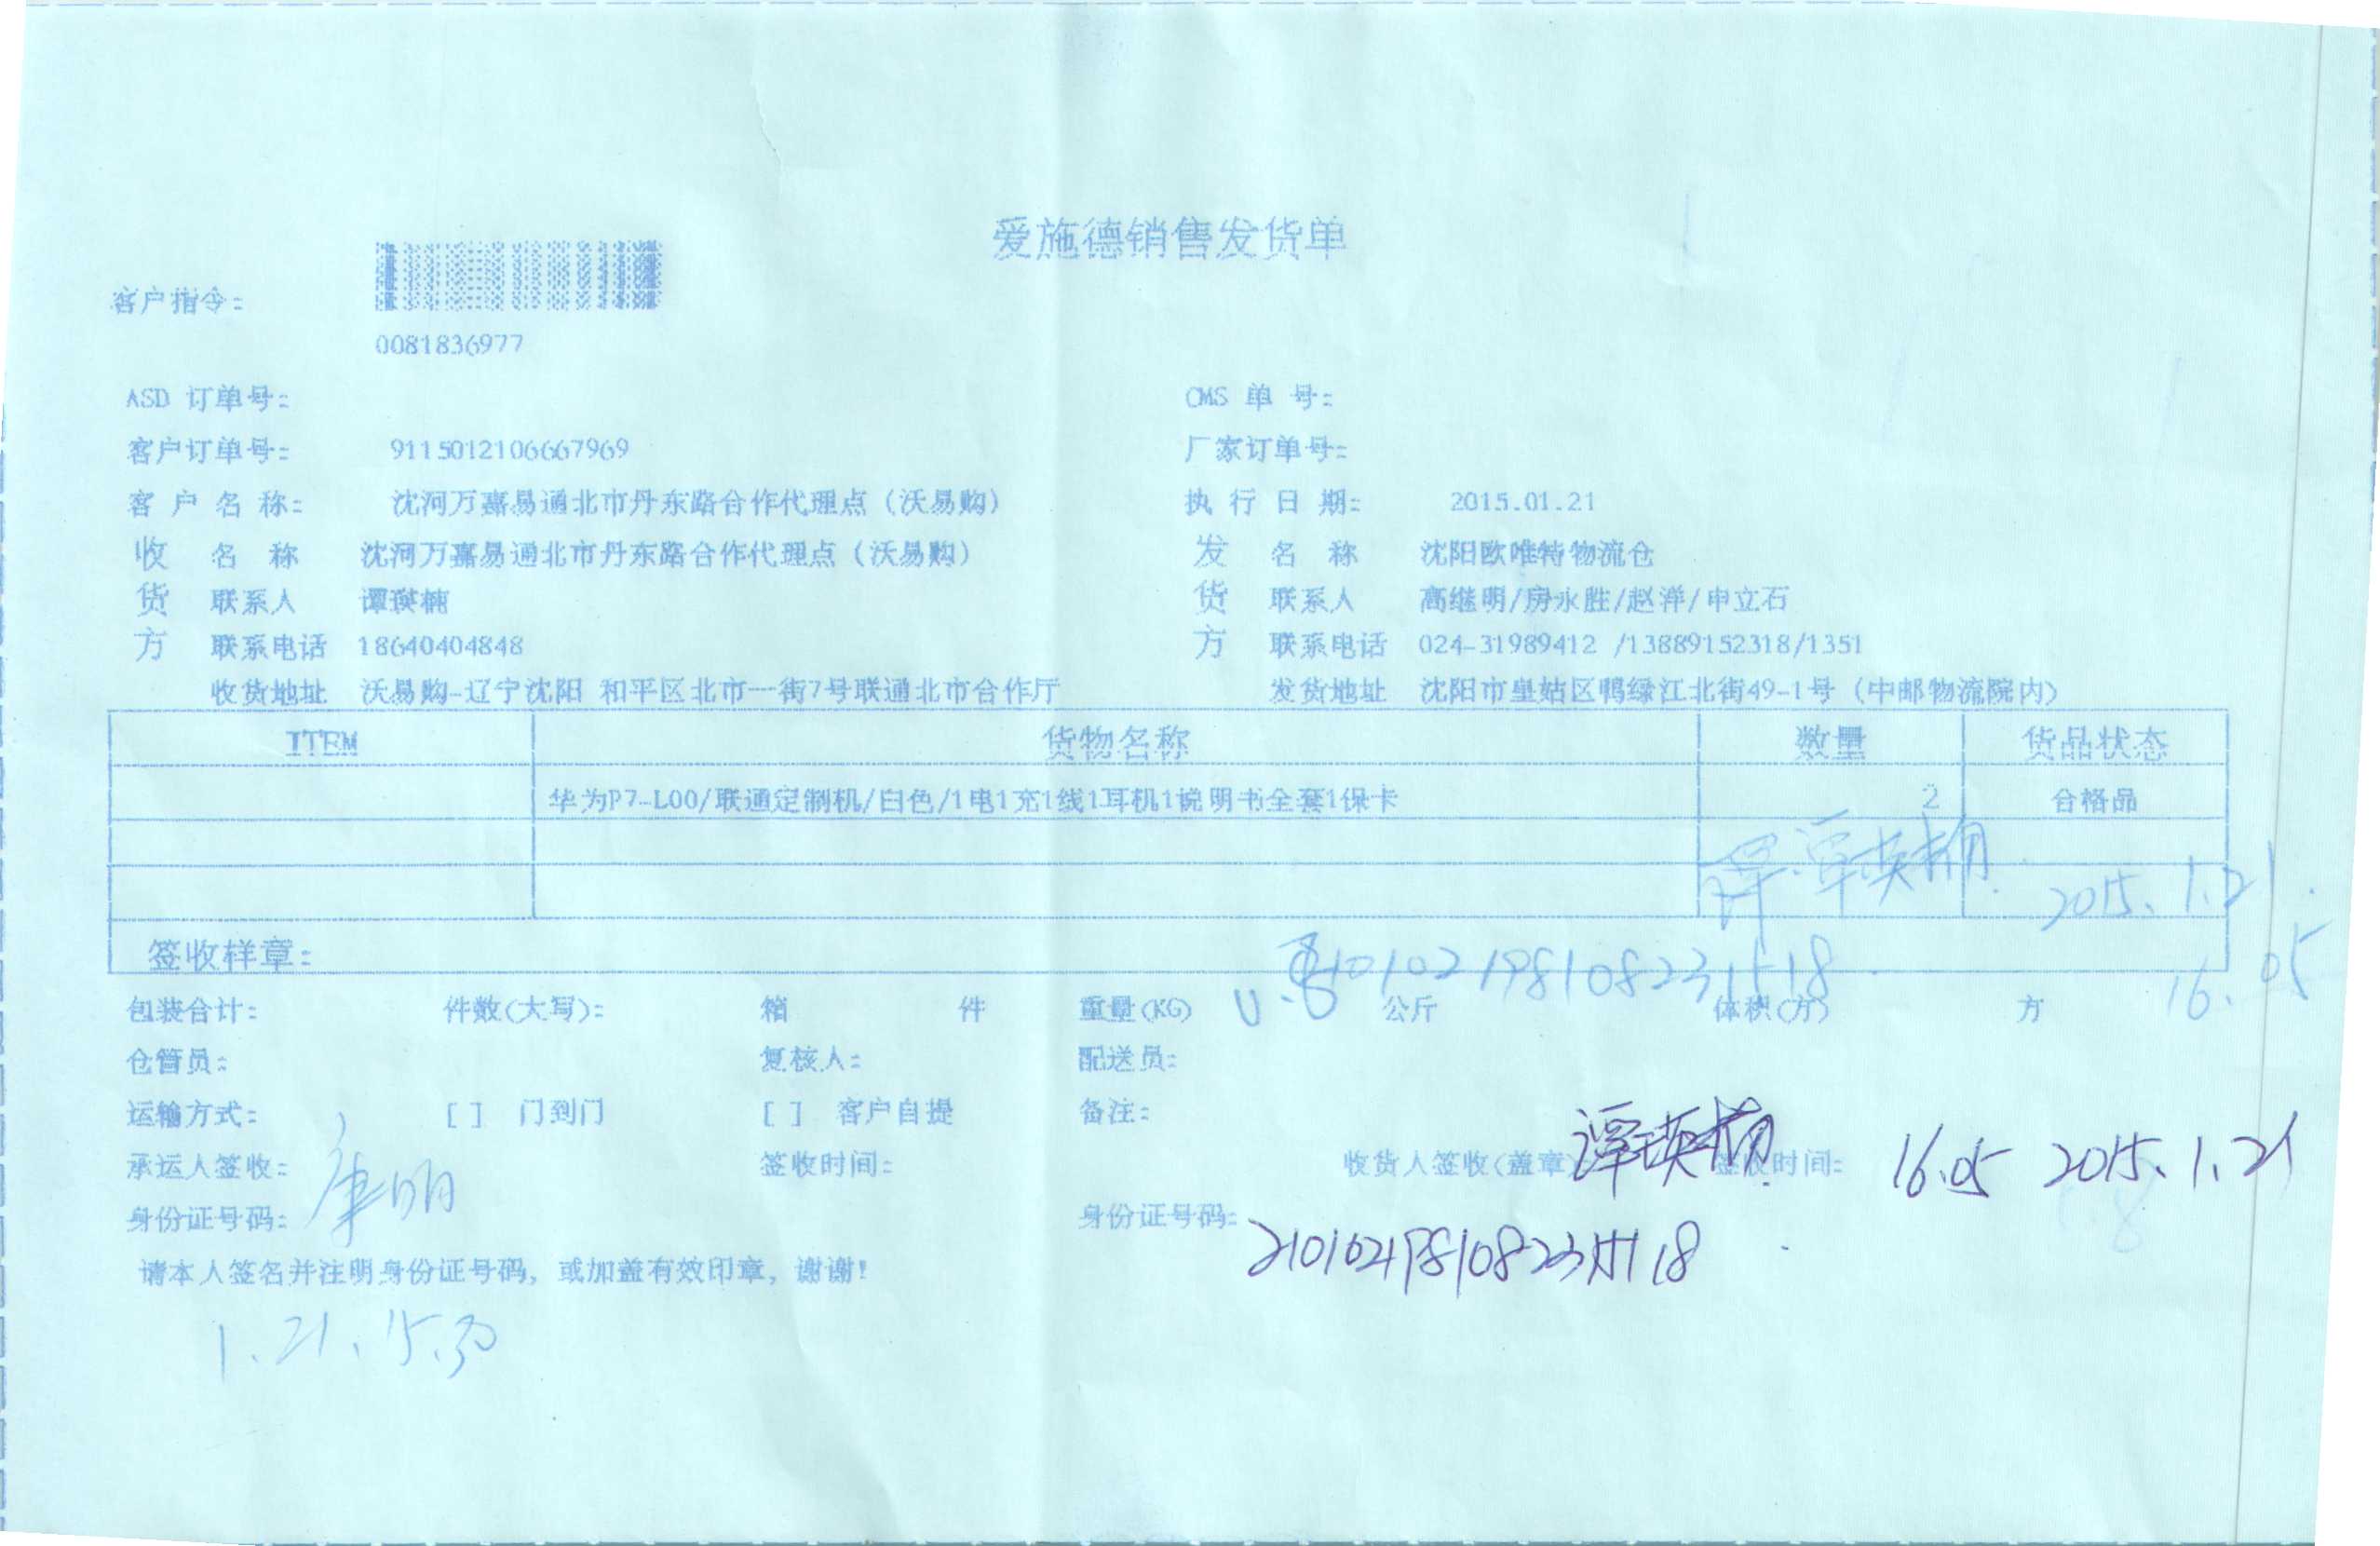 爱施德销售发货单
客户指令：
0081836977
ASD 订单号： CMS 单 号：
客户订单号： 9115012106667969 厂家订单号：
客 户 名 称： 沈河万嘉易通北市丹东路合作代理点（沃易购） 执 行 日 期： 2015.01.21
收 名 称 沈河万嘉易通北市丹东路合作代理点（沃易购） 发 名 称 沈阳欧唯特物流仓
货 联系人 谭瑛楠 货 联系人 高继明/房永胜/赵洋/申立石
方 联系电话 18640404848 方 联系电话 024-31989412 /13889152318/1351
收货地址 沃易购-辽宁沈阳 和平区北市一街7号联通北市合作厅 发货地址 沈阳市皇姑区鸭绿江北街49-1号（中邮物流院内）
ITEM 货物名称 数量 货品状态
华为P7-L00/联通定制机/白色/1电1充1线1耳机1说明书全套1保卡 2 合格品
谭瑛楠 2015.1.21.
签收样章： 210102198108231518 16.05
包装合计： 件数(大写)： 箱 件 重量(KG) 0.8 公斤 体积(方) 方
仓管员： 复核人： 配送员：
运输方式： [ ] 门到门 [ ] 客户自提 备注：
承运人签收： 康明 签收时间： 收货人签收(盖章) 谭瑛楠 签收时间： 16.05 2015.1.21
身份证号码： 身份证号码：
请本人签名并注明身份证号码，或加盖有效印章，谢谢！
1.21.15.30